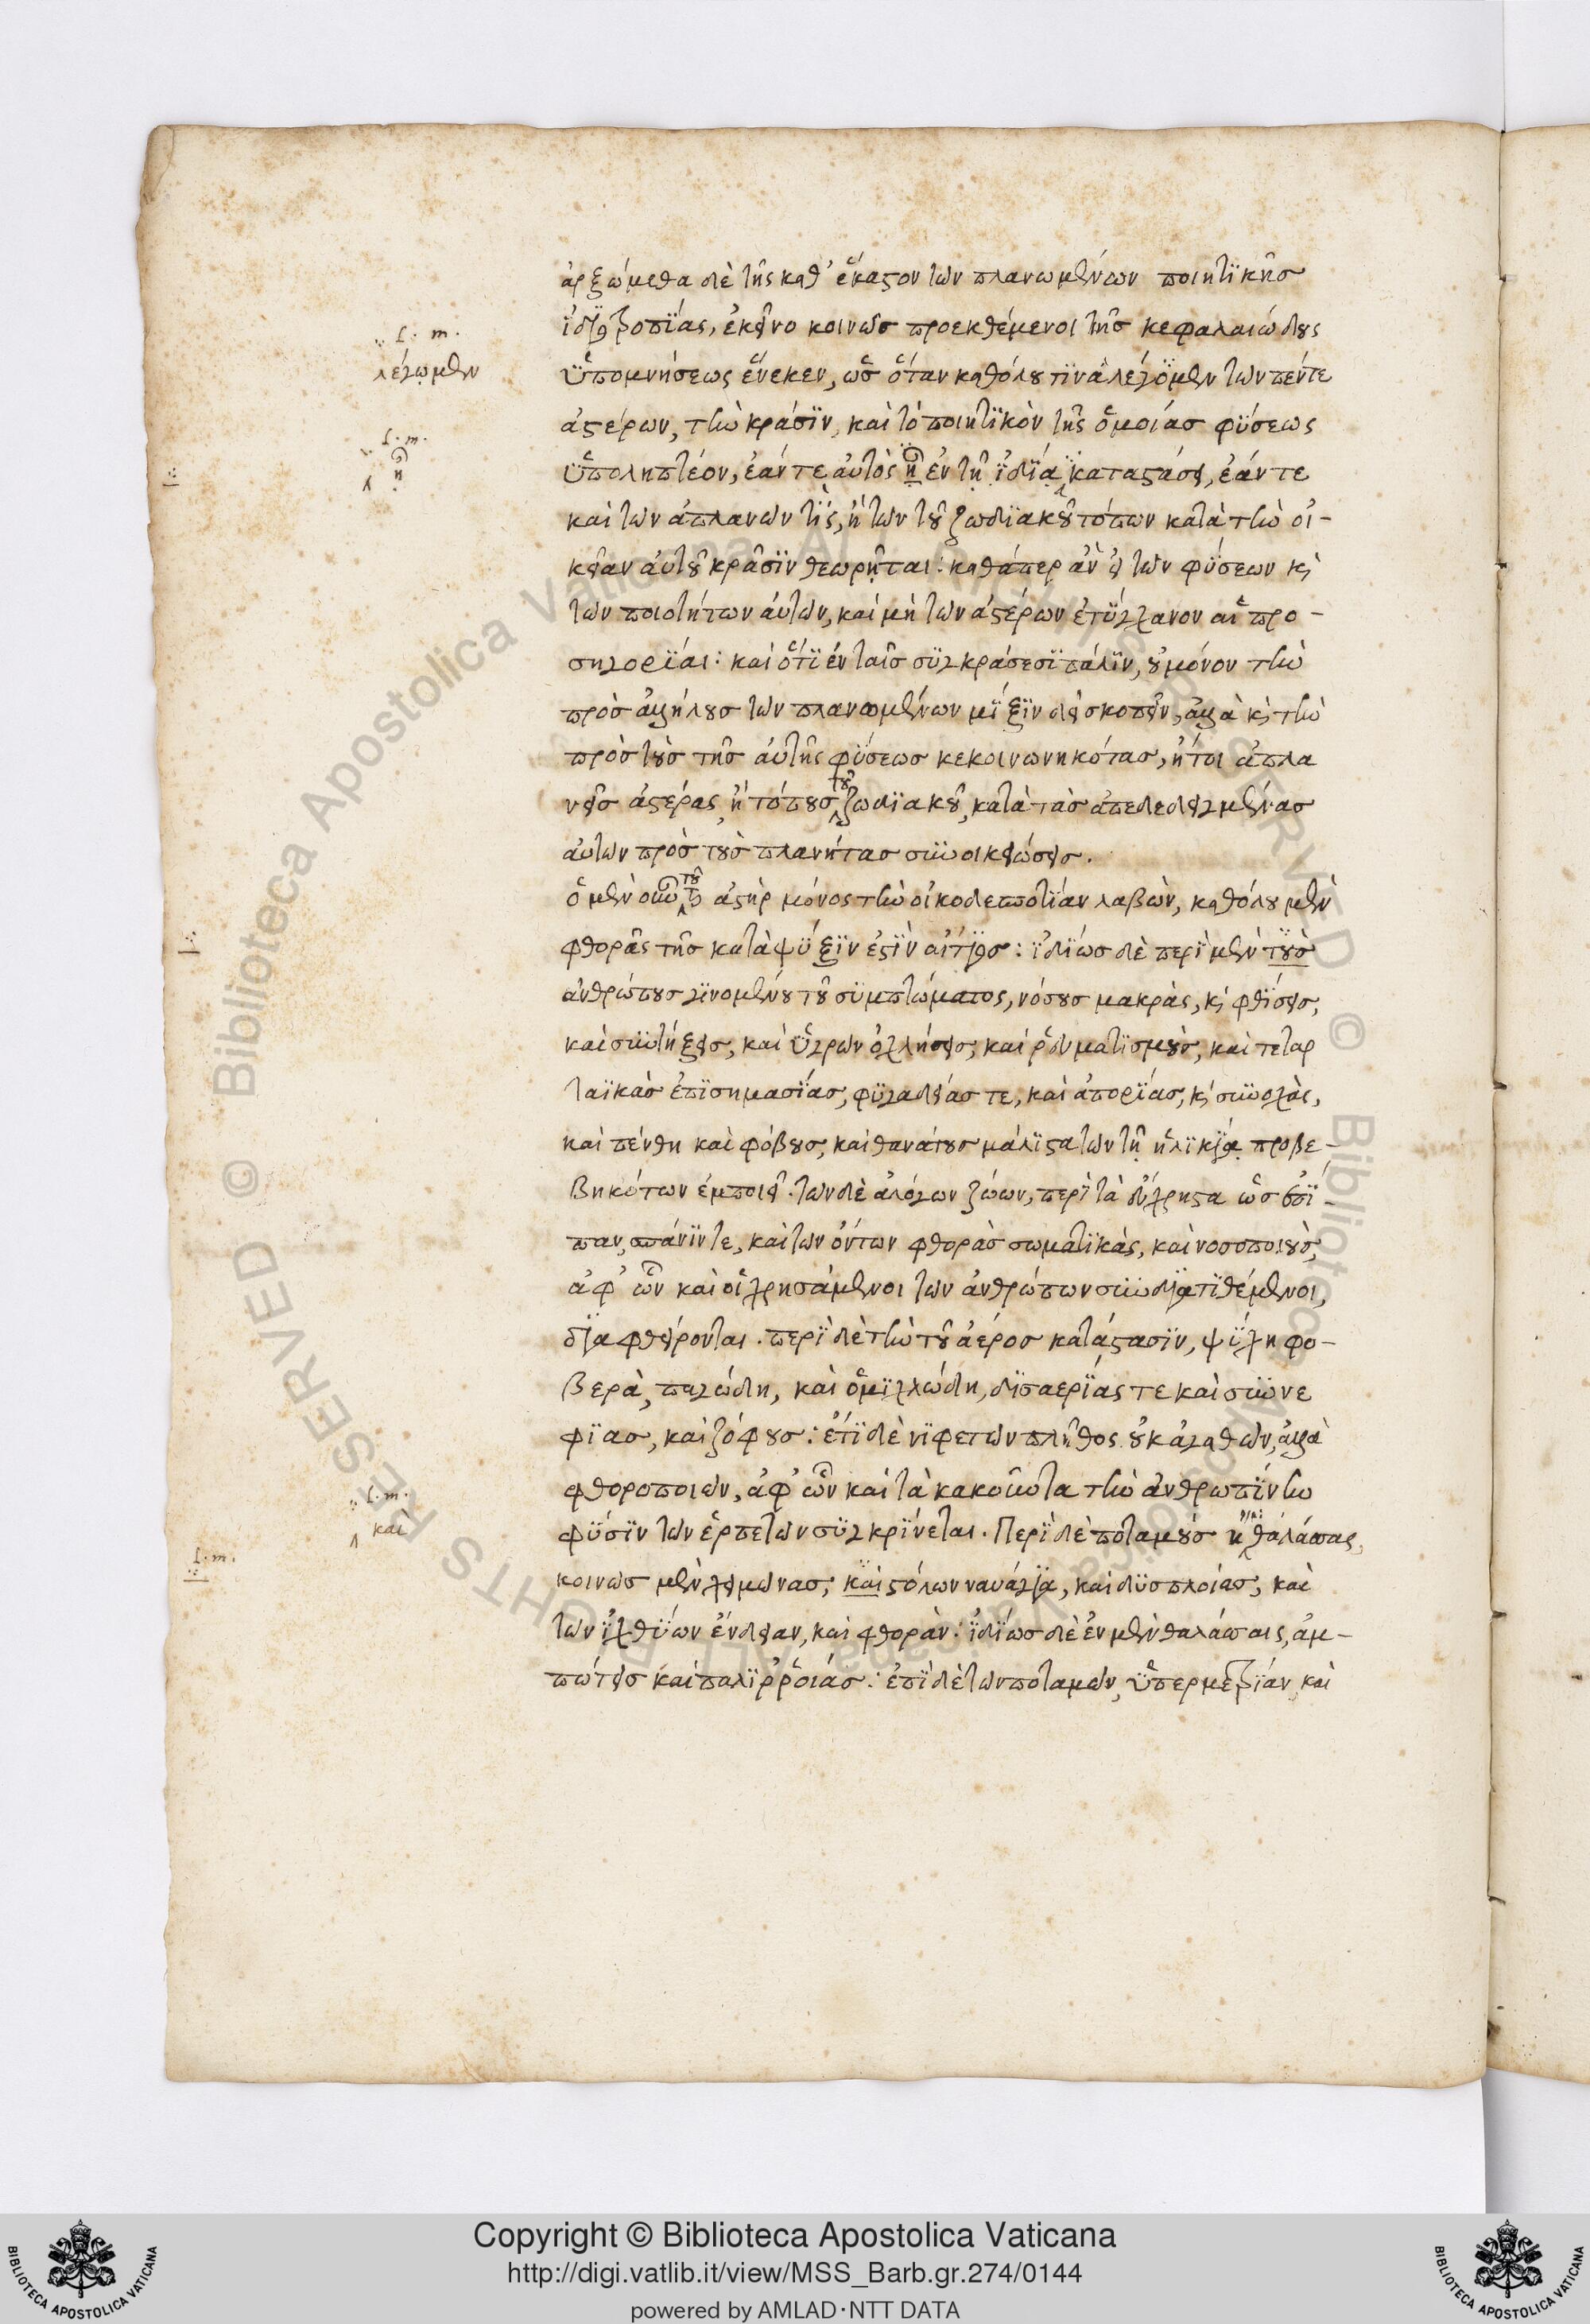 ἀρξώμεθα δὲ τῆς καθ' ἕκαστον τῶν πλανωμένων ποιητικῆσ
ἰδιοτροπίας, ἐκεῖνο κοινῶσ προεκθέμενοι τῆσ κεφαλαιώδους
L. m.
λέγωμεν
ὑπομνήσεως ἕνεκεν, ὡσ ὅταν καθόλου τινὰ λέγομεν τῶν πέντε
ἀστέρων, τὴν κράσιν, καὶ τὸ ποιητικὸν τῆς ὁμοιάσ φύσεως
L. m.
ᾖ
ὑποληπτέον, ἐάν τε αὐτὸς ᾖ ἐν τῇ ἰδίᾳ καταστάσει, ἐάν τε
καὶ τῶν ἀπλανῶν τίς, ἢ τῶν τοῦ ζωδιακοῦ τόπων κατὰ τὴν οἰ-
κείαν αὐτοῦ κρᾶσιν θεωρῆται: καθάπερ ἂν εἰ τῶν φύσεων κὶ
τῶν ποιοτήτων αὐτῶν, καὶ μὴ τῶν ἀστέρων ἐτύγχανον αἱ προ-
σηγορίαι: καὶ ὅτι ἐν ταῖσ συγκράσεσι πάλιν, οὐ μόνον τὴν
πρὸσ ἀλλήλουσ τῶν πλανωμένων μίξιν δεῖ σκοπεῖν, ἀλλὰ κὶ τὴν
πρὸσ τοὺσ τῆσ αὐτῆς φύσεωσ κεκοινωνηκότασ, ἤτοι ἀπλα
νεῖσ ἀστέρας, ἢ τόπουσ τοῦ ζωδιακοῦ, κατὰ τὰσ ἀπεδεδειγμένασ
αὐτῶν πρὸσ τοὺσ πλανήτασ συνοικειώσεισ.
ὁ μὲν οὖν τοῦ ♄ ἀστὴρ μόνος τὴν οἰκοδεσποτίαν λαβὼν, καθόλου μὲν
φθορᾶς τῆσ κατὰ ψύξιν ἐστὶν αἴτιοσ: ἰδίωσ δὲ περὶ μὲν τοὺσ
ἀνθρώπουσ γινομένου τοῦ συμπτώματος, νόσουσ μακρὰς, κὶ φθίσεισ,
καὶ συντήξεισ, καὶ ὑγρῶν ὀχλήσεισ, καὶ ῥευματισμοὺσ, καὶ τεταρ
ταϊκὰσ ἐπισημασίασ, φυγαδείασ τε, καὶ ἀπορίασ, κὶ συνοχὰς,
καὶ πένθη καὶ φόβουσ, καὶ θανάτουσ μάλιστα τῶν τῇ ἡλικίᾳ προβε-
βηκότων ἐμποιεῖ. τῶν δὲ ἀλόγων ζώων, περὶ τὰ εὔχρηστα ὡσ ἐπί-
παν, σπάνιν τε, καὶ τῶν ὄντων φθορὰσ σωματικὰς, καὶ νοσοποιοὺσ,
ἀφ' ὧν καὶ οἱ χρησάμενοι τῶν ἀνθρώπων συνδιατιθέμενοι,
διαφθείρονται. περὶ δὲ τὴν τοῦ ἀέροσ κατάστασιν, ψύχη φο-
βερὰ, παγώδη, καὶ ὁμιχλώδη, δισαερίας τε καὶ συννε
φίασ, καὶ ζόφουσ: ἔτι δὲ νιφετῶν πλῆθος οὐκ ἀγαθῶν, ἀλλὰ
φθοροποιῶν, ἀφ' ὧν καὶ τὰ κακοῦντα τὴν ἀνθρωπίνην
L. m.
καὶ
φύσιν τῶν ἑρπετῶν συγκρίνεται. Περὶ δὲ ποταμοὺσ ἢ καὶ θαλάσσας,
L. m.
κοινῶσ μὲν χειμῶνασ, καὶ στόλων ναυάγια, καὶ δυσπλοίασ, καὶ
τῶν ἰχθύων ἔνδειαν, καὶ φθορὰν: ἰδίωσ δὲ ἐν μὲν θαλάσσαις, ἀμ-
πώτεισ καὶ παλιῤῥοιάσ: ἐπὶ δὲ τῶν ποταμῶν, ὑπερμετρίαν, καὶ
Copyright © Biblioteca Apostolica Vaticana
http://digi.vatlib.it/view/MSS_Barb.gr.274/0144
powered by AMLAD·NTT DATA